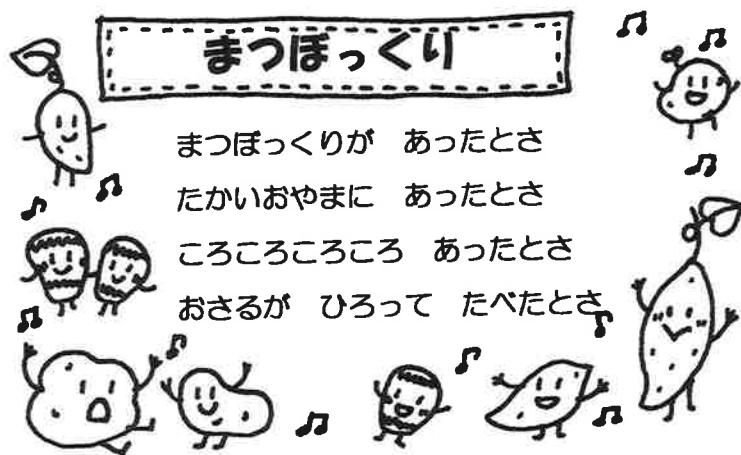 まつぼっくり
まつぼっくりが　あったとさ
たかいおやまに　あったとさ
ころころころころ　あったとさ
おさるが　ひろって　たべたとさ